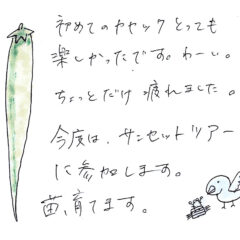 初めてのカヤックとっても
楽しかったです。わーい。
ちょっとだけ疲れました。
今度は、サンセットツアー
に参加します。
苗、育てます。